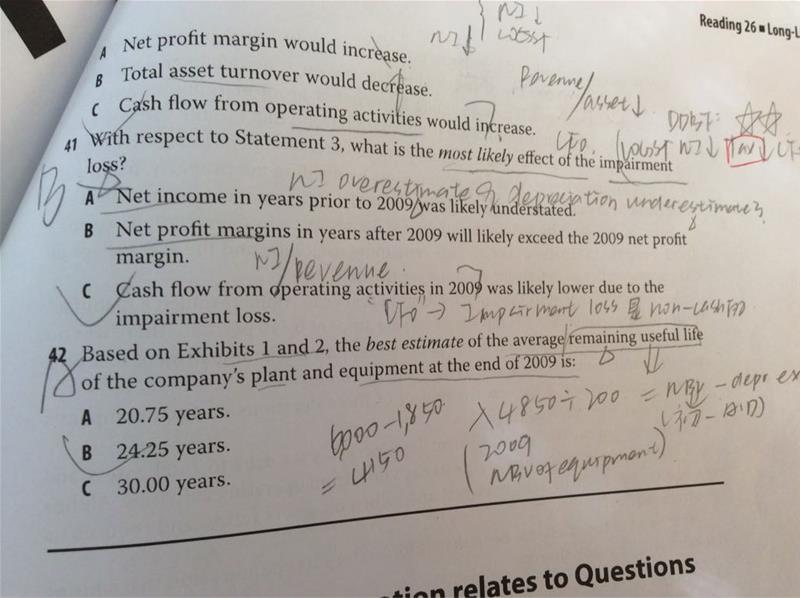 NI↓
NI↓ loss↑
Reading 26 ■ Long-L
A Net profit margin would increase.
B Total asset turnover would decrease.
Revenue/asset↓
C Cash flow from operating activities would increase.
CFO
41 With respect to Statement 3, what is the most likely effect of the impairment
loss?
B
NI overestimate
depreciation underestimate
A Net income in years prior to 2009 was likely understated.
B Net profit margins in years after 2009 will likely exceed the 2009 net profit
margin.
NI/revenue.
C Cash flow from operating activities in 2009 was likely lower due to the
impairment loss.
"CFO" → Impairment loss non-cash
42 Based on Exhibits 1 and 2, the best estimate of the average remaining useful life
of the company's plant and equipment at the end of 2009 is:
A 20.75 years.
B 24.25 years.
C 30.00 years.
6000-1,850
= 4150
4850÷200 = NBV - depr ex
(2009
NBV of equipment)
tion relates to Questions